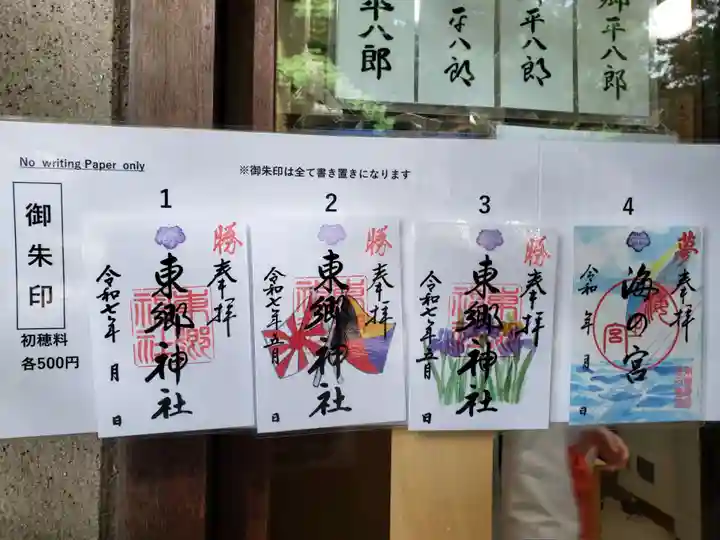 平八郎
平八郎
平八郎
郷平八郎
No writing Paper only
※御朱印は全て書き置きになります
御朱印
初穂料
各500円
1
勝
奉拝
東郷神社
令和七年 月 日
2
勝
奉拝
東郷神社
令和七年五月 日
3
勝
奉拝
東郷神社
令和七年五月 日
4
夢
奉拝
海の宮
令和 年 月 日